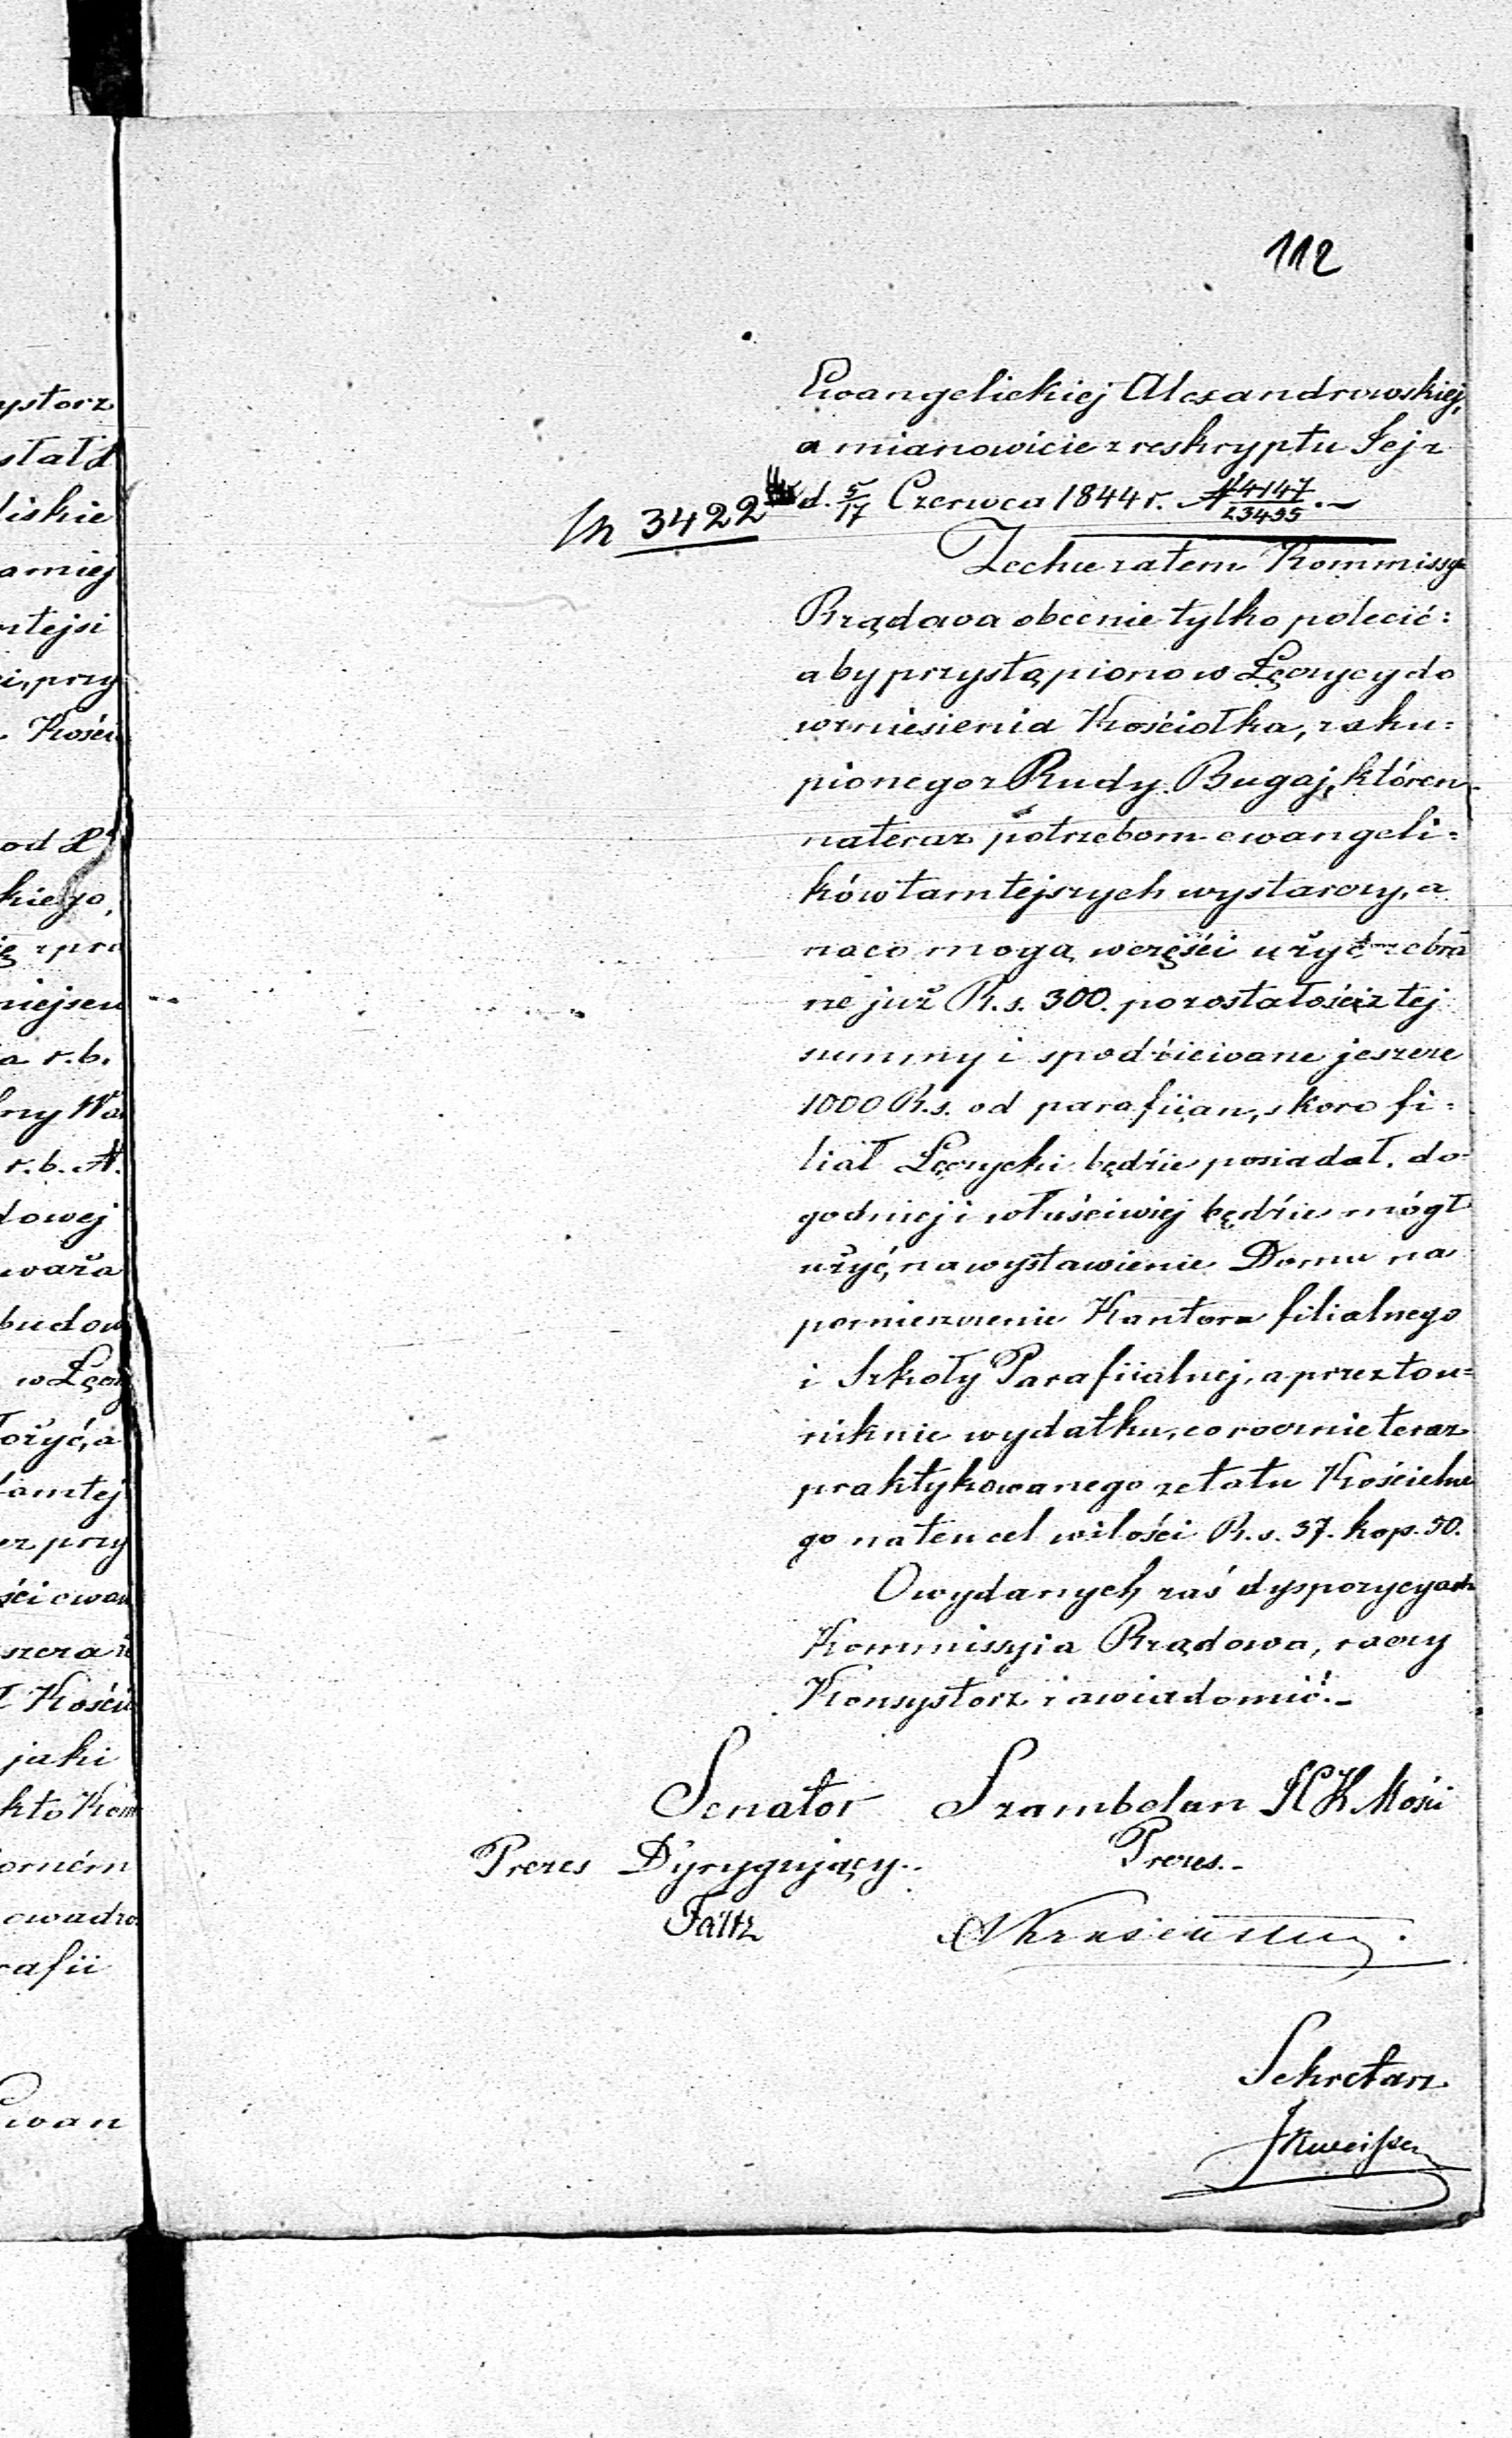 112
Ewangelickiej Alexandrowskiej,
a mianowicie z reskryptu Jej z
d. 5/17 Czerwca 1844 r. N 4147/23495. –
3422
Zechce zatem Kommissya
Rządowa obecnie tylko polecić:
aby przystąpiono w Łęczycy do
wzniesienia Kościołka, zaku=
pionego z Rudy Bugaj, któren
nateraz potrzebom ewangeli=
ków tamtejszych wystarczy, a
na co mogą w części użyć zebra
ne już R.s. 300. pozostałości z tej
summy i spodziewane jeszcze
1000 R.s. od parafiian, skoro fi=
liał Łęczycki będzie posiadał, do=
godniej i właściwiej będzie mógł
użyć, na wystawienie Domu na
pomieszczenie Kantora filialnego
i Szkoły Parafiialnej, a przez to u=
niknie wydatku, corocznie teraz
praktykowanego z etatu Kościelne
go na ten cel w ilości R.s. 37. kop. 50.
O wydanych zaś dyspozycyach
Kommissyia Rządowa, raczy
Konsystorz zawiadomić. –
Senator Szambelan J K Mości
Prezes Dyrygujący. Prezes. –
Sekretarz
ystorz
stał
liskie
amiej
ci, przy
Kości
od
kiego,
ę z pra
niejszu
a r.b.
ny Wa
r.b. N.
dowej
waża
budow
w Łęcz
ożyć, a
tamtej
ez przy
ści ewan
szcza
Kości
jaki
kto Kom
orném
owadzo
rafii
Ewan